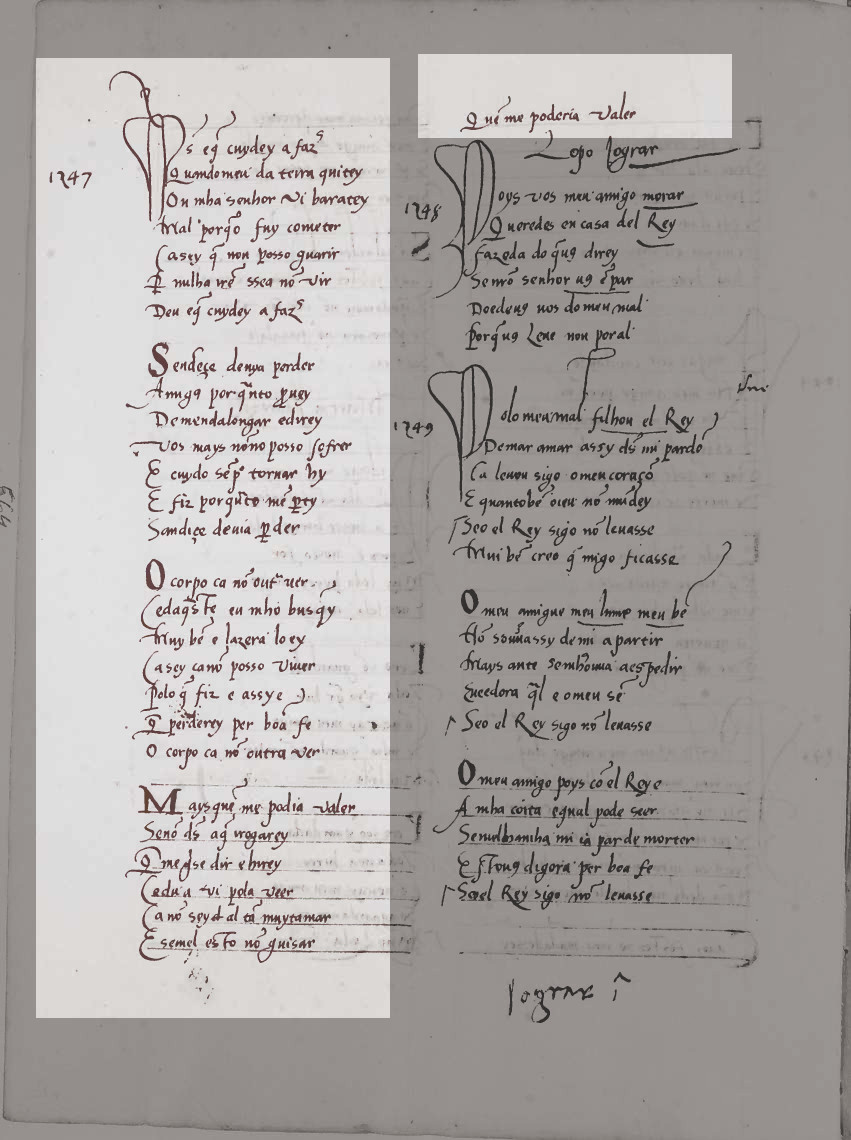 1247
Ds eq̃ cuydey a faz̃
Quando meu da terra quitey
Ou mha senhor vi baratey
Mal porq̃o fuy cometer
Ca sey q̃ non posso guarir
Deu eq̃ cuydey a faz̃
Sendeçe deuya perder
Amigꝯ por q̃nto ꝓuey
Demendalongar edirey
Vos mays nõno posso sofrer
E cuydo sẽp̃ tornar hy
E fiz por q̃nto mẽ ꝑty
Sandiçe deuia ꝑder
O corpo ca nõ outr̃ uer
Muy bẽ e lazera lo ey
Ca sey ca nõ posso viuer
Polo q̃ fiz e assy e
Q̃ perderey per boa fe
O corpo ca nõ outra ver
Maysquẽ me podia valer
Senõ ds̃ aq̃ irogarey
Q̃ me guise dir ehirey
Cedu a vi pola veer
Ca nõ sey al tã muytamar
E semel esto nõ guisar
Quẽ me poderia valer
Lopo lograr
1248
Poys vos meu amigo morar
Queredes en casa del Rey
Fazeda do q̃uꝯ direy
Se nrõ senhor uꝯ ẽpar
Doedeuꝯ uos do meu mal
Porq̃uꝯ leue non por al
1249
Polo meu mal filhou el Rey
De mar amar assy ds̃ mi pardõ
Ca leuou sigo o meu coraçõ
E quanto bẽ oieu nõ mũdey
Seo el Rey sigo nõ leuasse
Mui bẽ creo q̃ migo ficasse
O meu amigue meu lume meu bẽ
Nõ souuassy de mi a partir
Mays ante sembouua aespedir
Eueedora q̃l e o meu sẽ
Seo el Rey sigo nõ leuasse
O meu amigo poys cõ el Rey e
A mha coita egual pode seer
Semelhamha mi ia par de morter
Esto uꝯ digora per boa fe
Seo el Rey sigo nõ leuasse
lograr